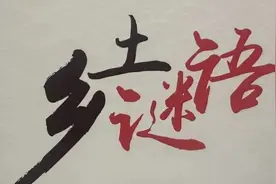 乡土谜语